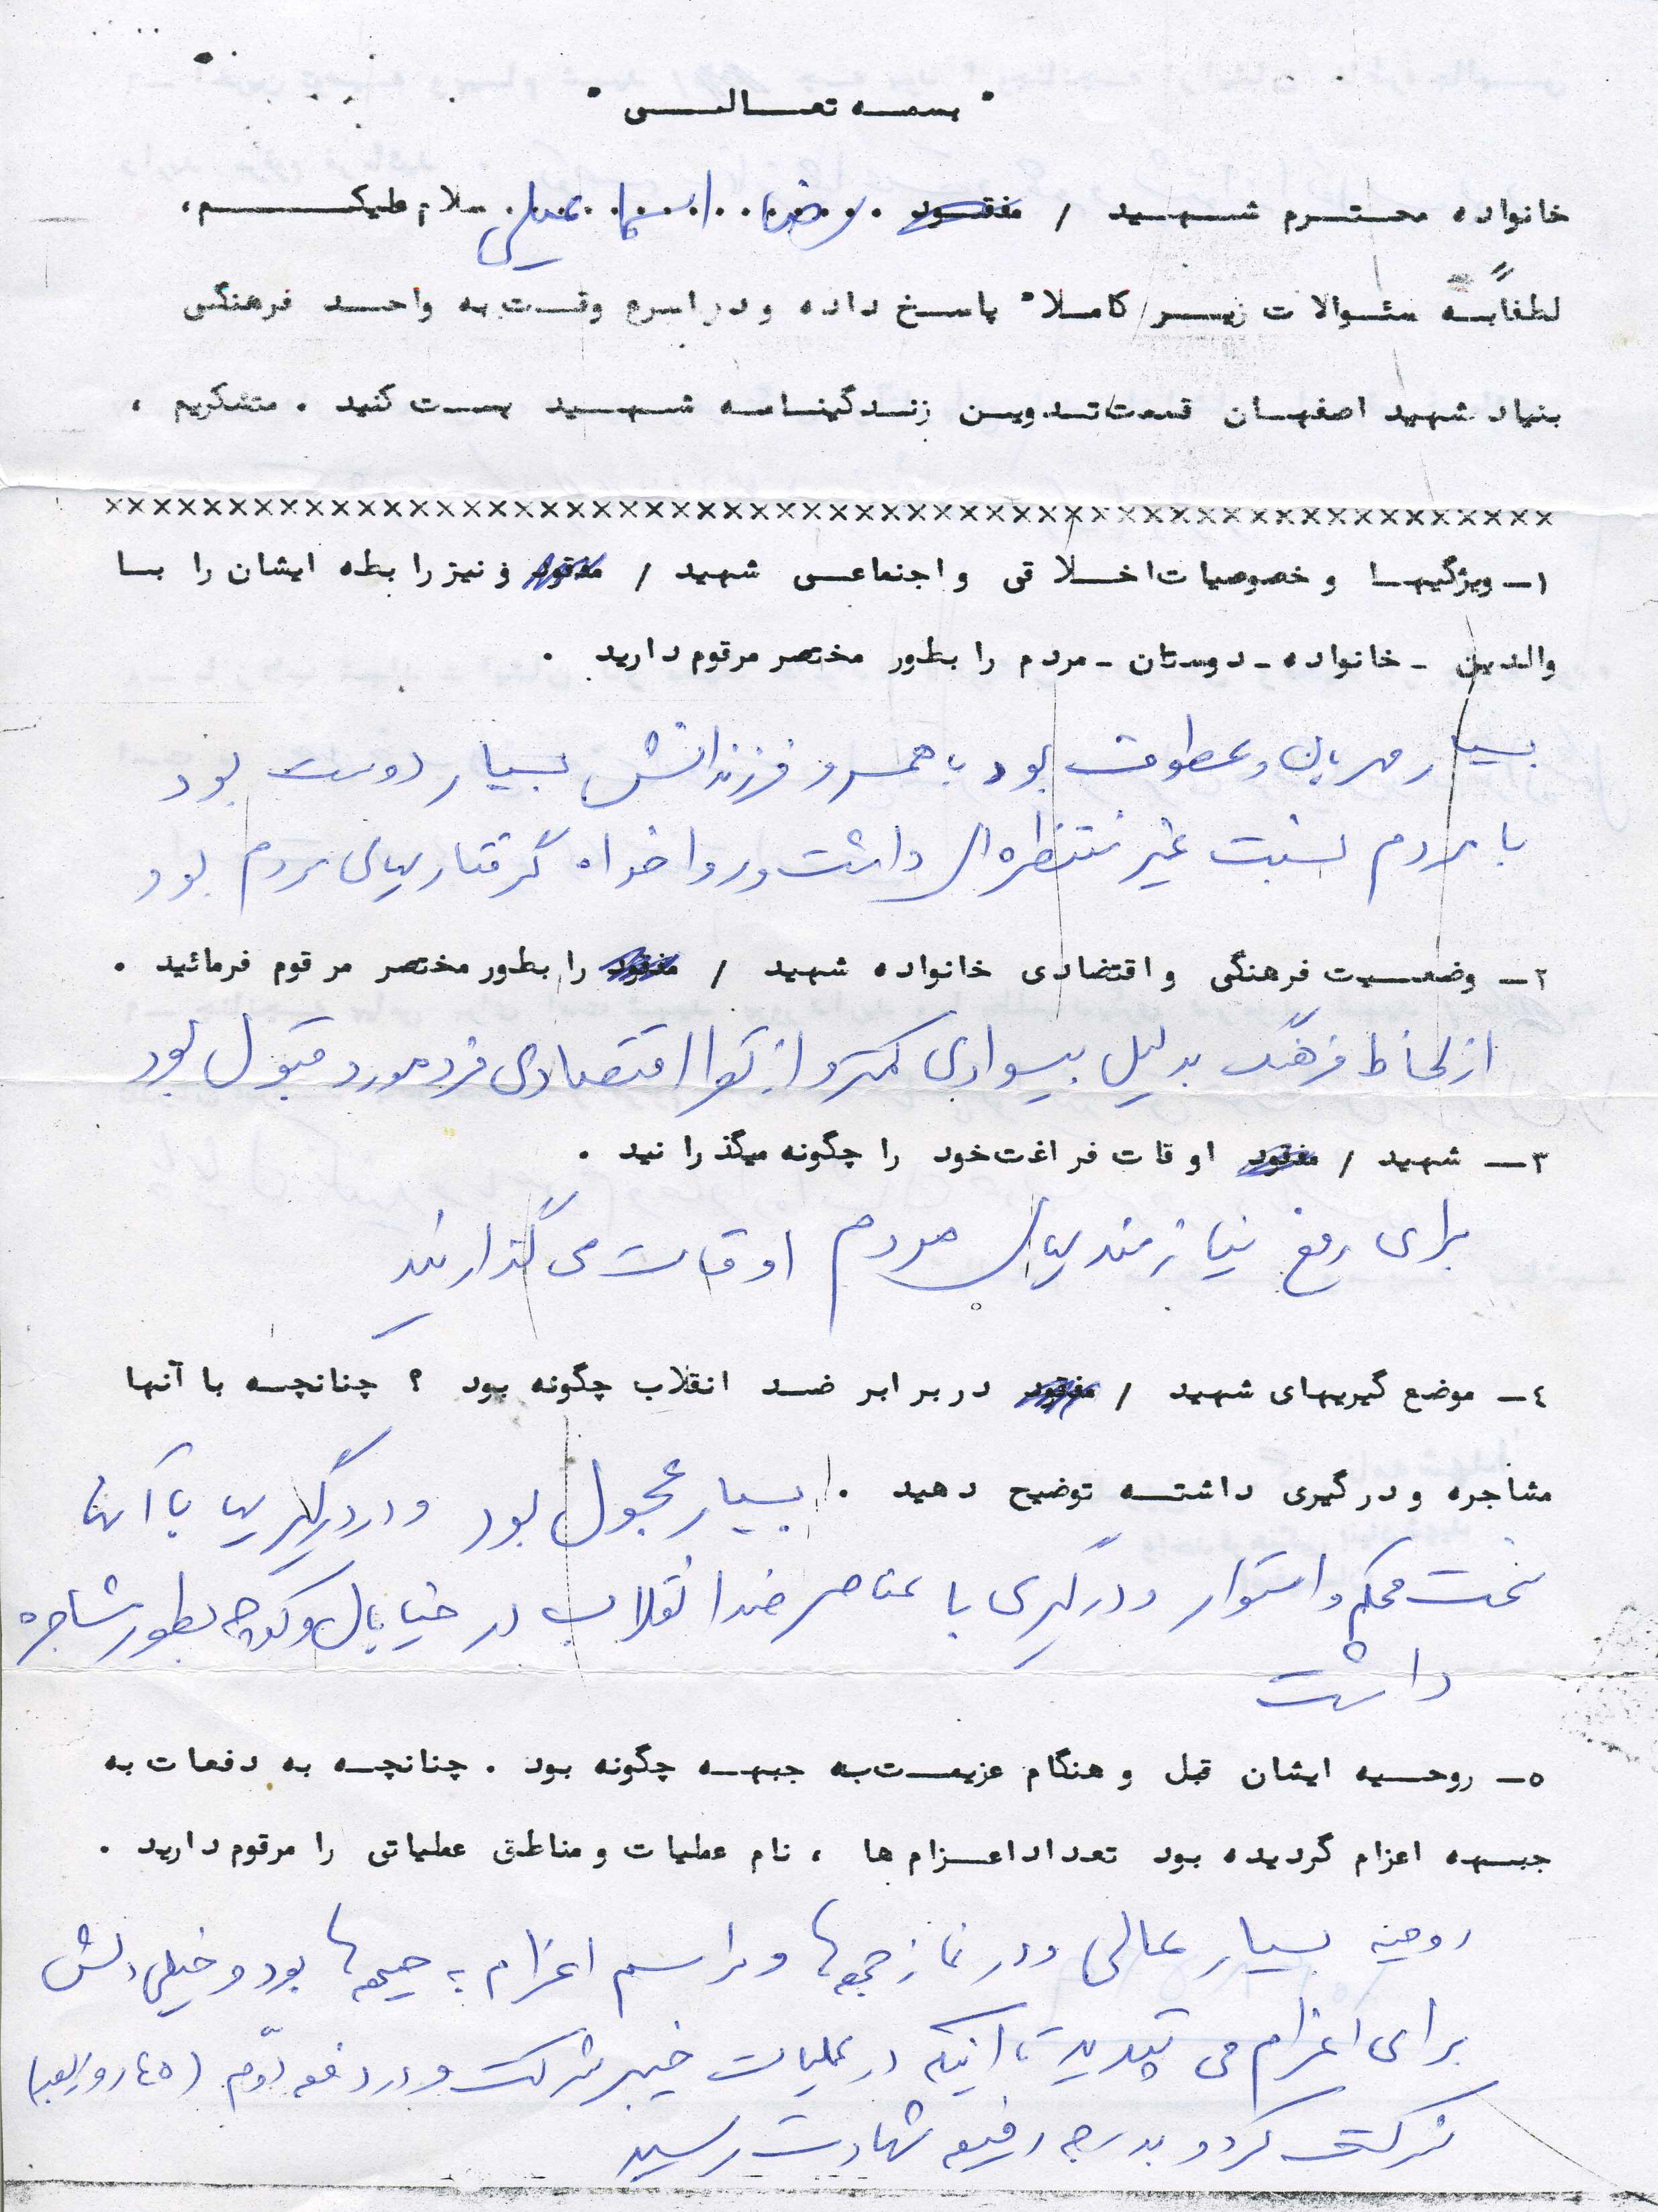 " بسمه تعالی "
خانواده محترم شهید / مفقود ..... رضا اسماعیلی ..... سلام علیکم ،
لطفاً به سئوالات زیر کاملا" پاسخ داده و در اسرع وقت به واحد فرهنگی
بنیاد شهید اصفهان قسمت تدوین زندگینامه شهید پست کنید . متشکریم ،
××××××××××××××××××××××××××××××××××××××××××××××××××××××××
۱ـ ویژگیها و خصوصیات اخلاقی و اجتماعی شهید / مفقود و نیز رابطه ایشان را با
والدین ـ خانواده ـ دوستان ـ مردم را بطور مختصر مرقوم دارید .
بسیار مهربان و عطوفت بود با همسر و فرزندانش بسیار دوست بود
با مردم نسبت غیر منتظره ای داشت و رواخواه گرفتاریهای مردم بود
۲ـ وضعیت فرهنگی و اقتصادی خانواده شهید / مفقود را بطور مختصر مرقوم فرمائید .
از لحاظ فرهنگ بدلیل بیسوادی کمتر و از اقتصادی فرد مورد قبول بود
۳ـ شهید / مفقود اوقات فراغت خود را چگونه میگذرانید .
برای رفع نیازمندیهای مردم اوقات می گذارنید
٤ـ موضع گیریهای شهید / مفقود در برابر ضد انقلاب چگونه بود ؟ چنانچه با آنها
مشاجره و درگیری داشته توضیح دهید . بسیار عجول بود و در درگیریها با آنها
سخت محکم و استوار و درگیری با عناصر ضد انقلاب در خیابان و کوچه بطور مشاجره
داشت
٥ـ روحیه ایشان قبل و هنگام عزیمت به جبهه چگونه بود . چنانچه به دفعات به
جبهه اعزام گردیده بود تعداد اعزام ها ، نام عملیات و مناطق عملیاتی را مرقوم دارید .
روحیه بسیار عالی و در نماز جمعه ها و مراسم اعزام به جبهه ها بود و خیلی دلش
برای اعزام می تپید تا اینکه در عملیات خیبر شرکت و در دفعه دوّم (٤٥ روز بعد)
شرکت کرد و بدرجه رفیع شهادت رسید